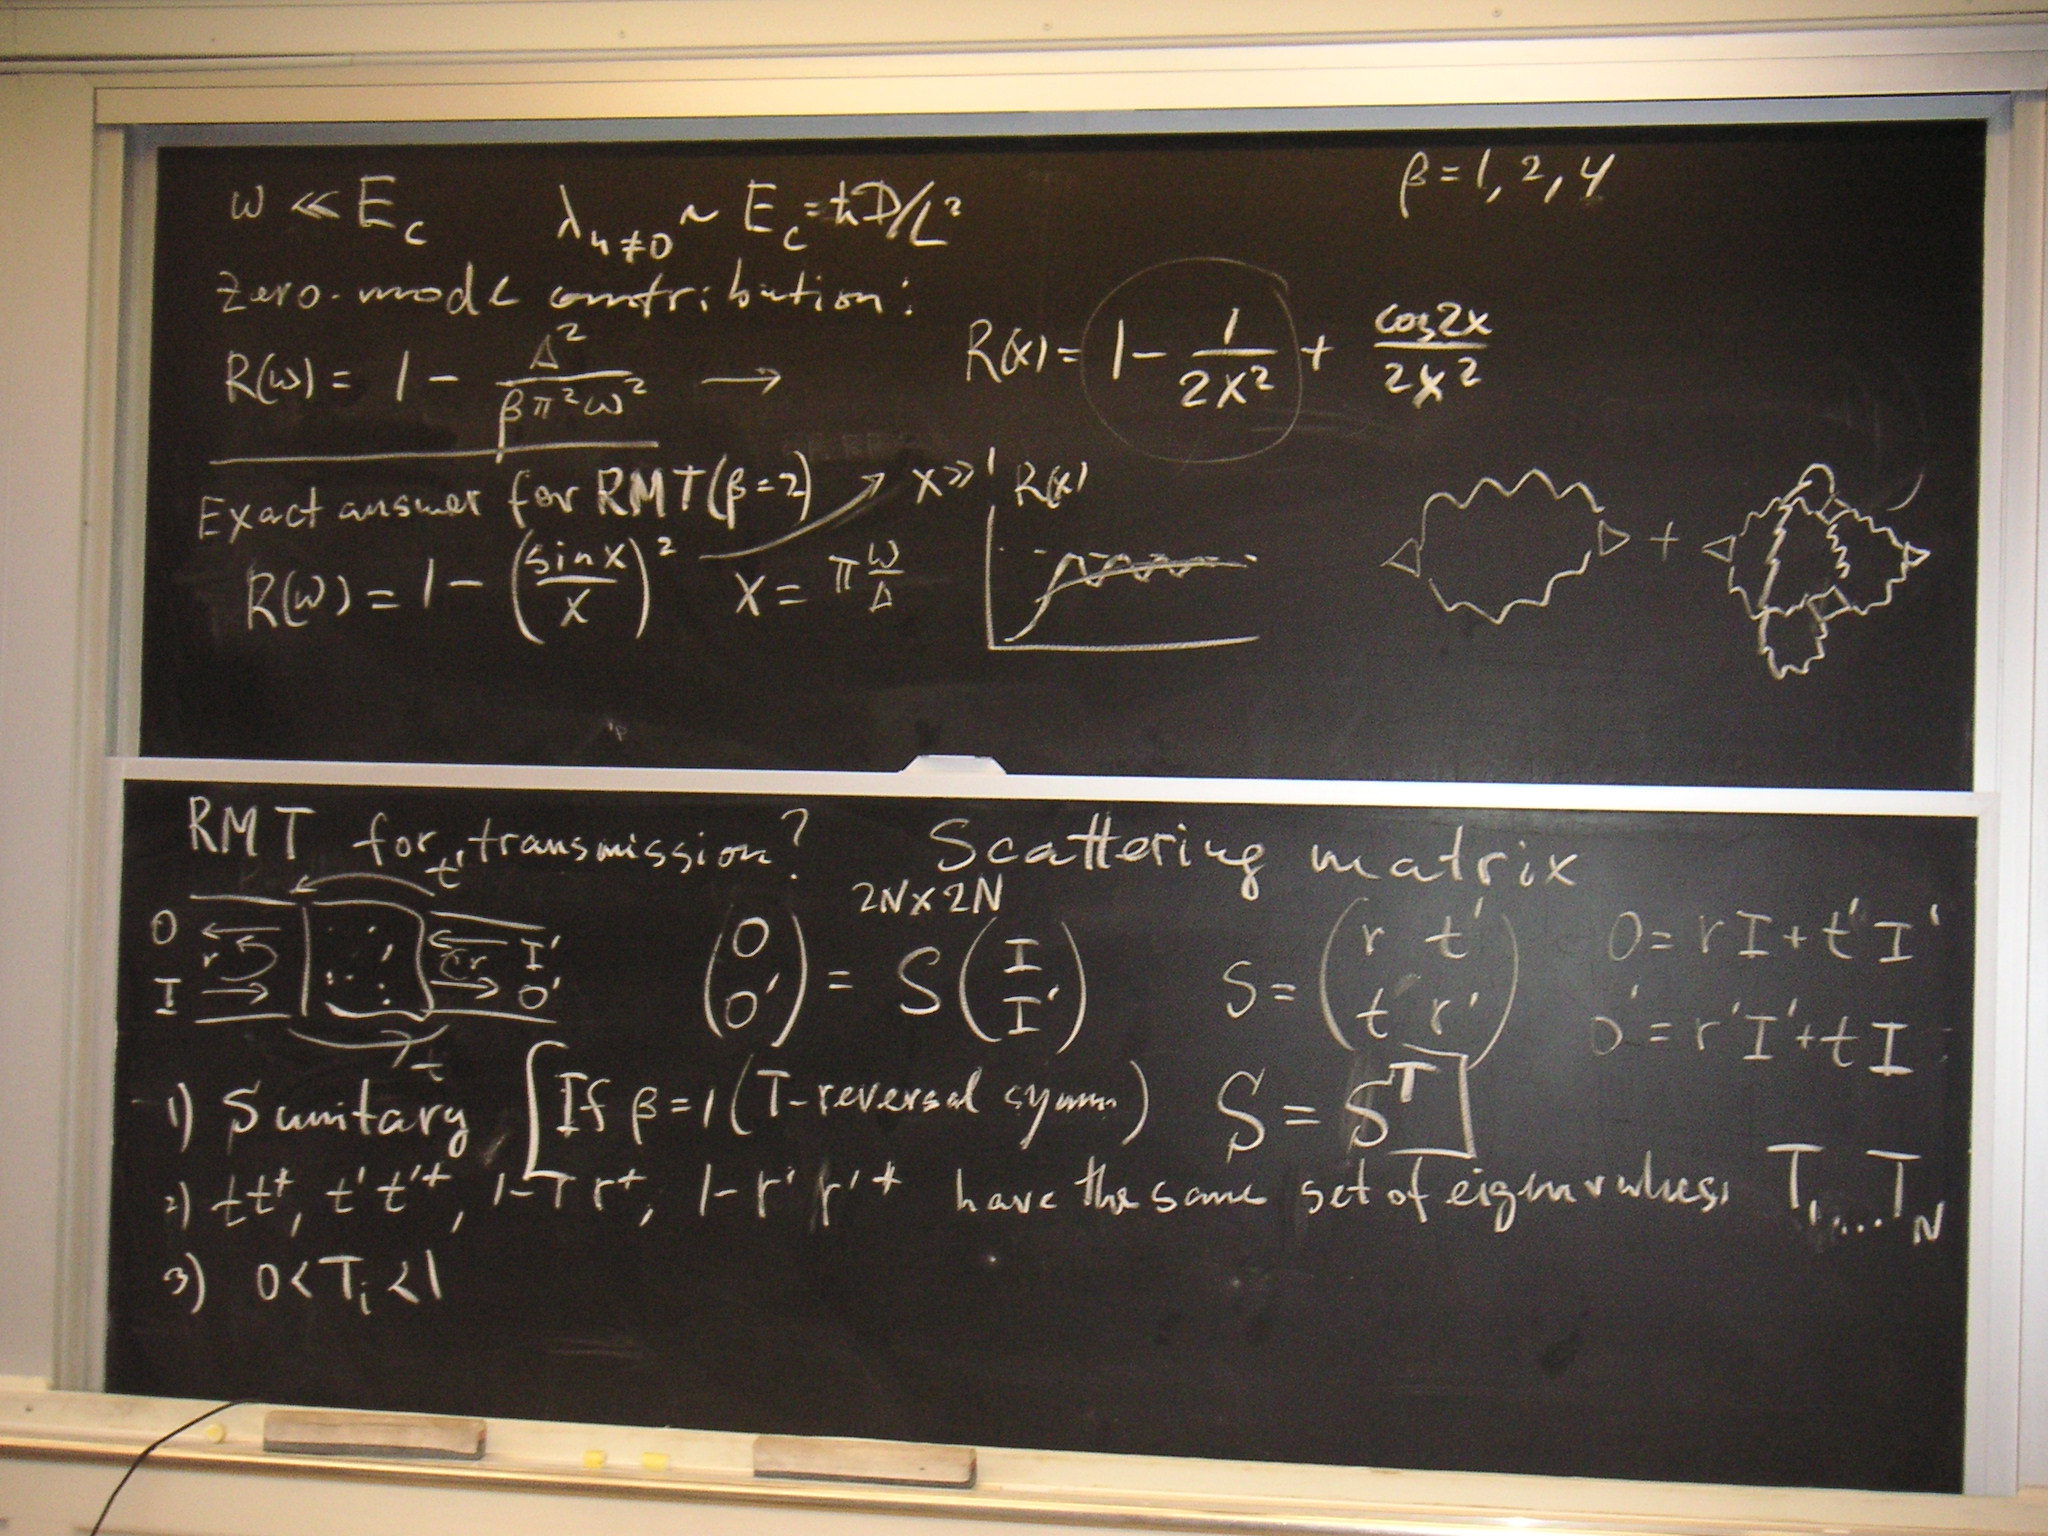 ω ≪ E_c    λ_{n≠0} ~ E_c = ħD/L²    β = 1, 2, 4
Zero-mode contribution:
R(ω) = 1 - Δ²/(βπ²ω²) →    R(x) = 1 - 1/(2x²) + cos2x/(2x²)
Exact answer for RMT (β=2)    x ≫ 1    R(x)
R(ω) = 1 - (sin x / x)²    x = π ω/Δ
+
RMT for transmission?    Scattering matrix
t'
2N×2N
O    r    I    I'    r    O'    t
(O O') = S (I I')    S = (r t' t r')    O = rI + t'I'
O' = r'I' + tI
1) S unitary [If β=1 (T-reversal symm) S = S^T]
2) tt⁺, t't'⁺, 1-rr⁺, 1-r'r'⁺ have the same set of eigenvalues. T₁...T_N
3) 0<T_i<1